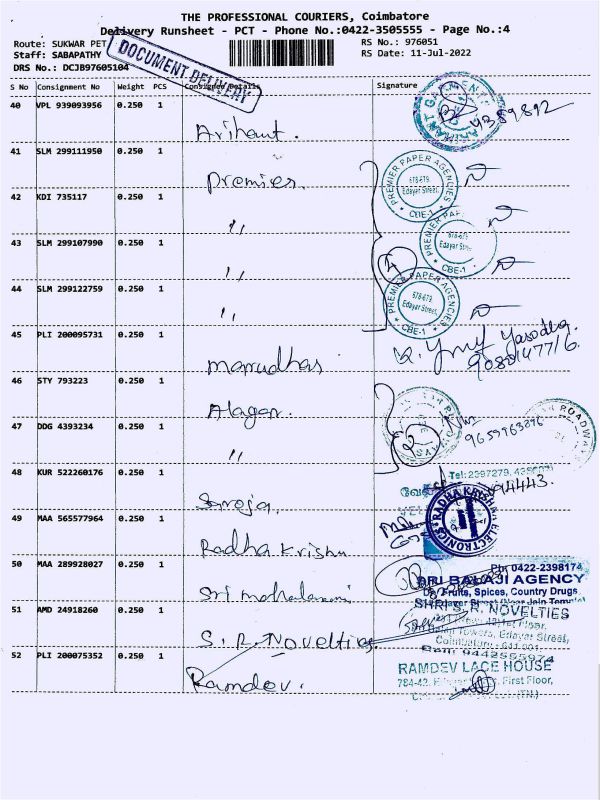 THE PROFESSIONAL COURIERS, Coimbatore
Delivery Runsheet - PCT - Phone No.:0422-3505555 - Page No.:4
Route: SUKWAR PET
RS No.: 976051
Staff: SABAPATHY
RS Date: 11-Jul-2022
DRS No.: DCJB97605104
DOCUMENT DELIVERY
S No Consignment No Weight PCS Consignee Details Signature
40 VPL 939093956 0.250 1
Arihant.
41 SLM 299111950 0.250 1
Premier
PREMIER PAPER AGENCIES
678-679,
Edayar Street,
CBE-1
42 KDI 735117 0.250 1
"
PREMIER PAP
678-679
Edayar Stre
CBE-1
43 SLM 299107990 0.250 1
"
4
44 SLM 299122759 0.250 1
"
PREMIER PAPER AGENCIES
678-679,
Edayar Street,
CBE-1
45 PLI 200095731 0.250 1
Marudhas
Yasodha.
46 STY 793223 0.250 1
Alagar.
47 DDG 4393234 0.250 1
"
2
ROADWAY
48 KUR 522260176 0.250 1
Saroja.
Tel: 2397279,
49 MAA 565577964 0.250 1
Radha Krishn
RADHA KRISHNA ELECTRONICS
50 MAA 289928027 0.250 1
Sri mahalaxmi
Ph: 0422-2398174
SRI BALAJI AGENCY
Dry Fruits, Spices, Country Drugs
51 AMD 24918260 0.250 1
S.R. Novelties
SHRI S. R. NOVELTIES
Towers, Edayar Street,
Coimbatore - 641 001.
52 PLI 200075352 0.250 1
Ramdev.
RAMDEV LACE HOUSE
784-42, First Floor,